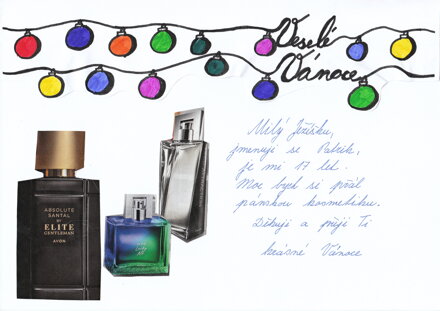 Veselé
Vánoce
Milý Ježíšku,
jmenuji se Patrik,
je mi 17 let.
Moc bych si přál
pánskou kosmetiku.
Děkuji a přeji Ti
krásné Vánoce
ABSOLUTE
SANTAL
BY
ELITE
GENTLEMAN
AVON